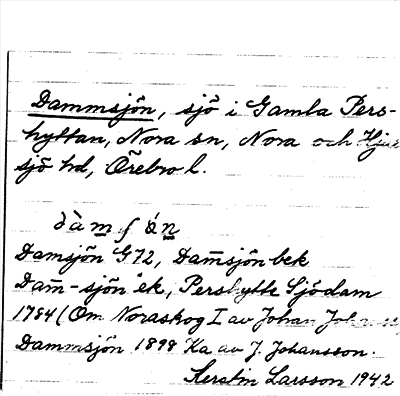 Dammsjön, sjö i Gamla Pers-
hyttan, Nora sn, Nora och Hju
sjö hd, Örebro l.
dàmʃ ǿn
Damsjön G72, Dam̄sjön bek
Dam̄-sjön ek, Pershytte Sjödam
1784 (Om Noraskog I av Johan
Dammsjön 1898 Ka av J. Johansson.
Kerstin Larsson 1942